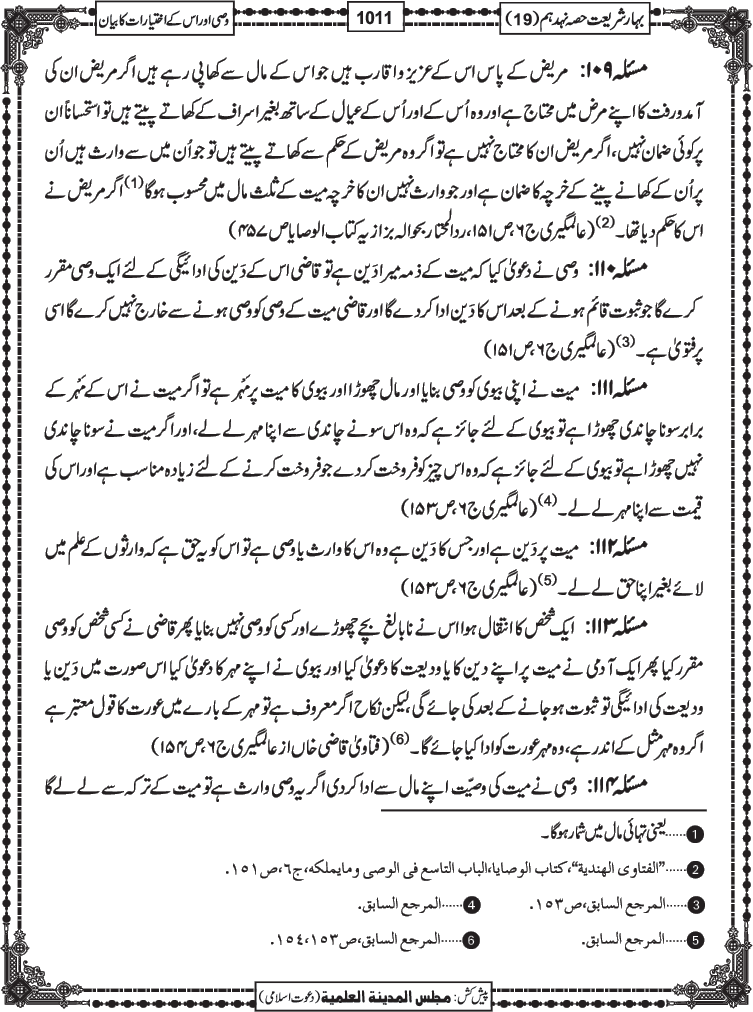 بہار شریعت حصہ نہدہم (19)
1011
وصی اور اس کے اختیارات کا بیان
مسئلہ ۱۰۹: مریض کے پاس اس کے عزیز و اقارب ہیں جو اس کے مال سے کھا پی رہے ہیں اگر مریض ان کی
آمدورفت کا اپنے مرض میں محتاج ہے اور وہ اُس کے اور اُس کے عیال کے ساتھ بغیر اسراف کے کھاتے پیتے ہیں تو استحساناً ان
پر کوئی ضمان نہیں، اگر مریض ان کا محتاج نہیں ہے تو اگر وہ مریض کے حکم سے کھاتے پیتے ہیں تو جو اُن میں سے وارث ہیں اُن
پر اُن کے کھانے پینے کے خرچہ کا ضمان ہے اور جو وارث نہیں ان کا خرچہ میت کے ثلث مال میں محسوب ہوگا(1) اگر مریض نے
اس کا حکم دیا تھا۔(2) (عالمگیری ج۶، ص۱۵۱، ردالمحتار بحوالہ بزازیہ کتاب الوصایا ص۴۵۷)
مسئلہ ۱۱۰: وصی نے دعویٰ کیا کہ میت کے ذمہ میرا دَین ہے تو قاضی اس کے دَین کی ادائیگی کے لئے ایک وصی مقرر
کرے گا جو ثبوت قائم ہونے کے بعد اس کا دَین ادا کردے گا اور قاضی میت کے وصی کو وصی ہونے سے خارج نہیں کرے گا اسی
پر فتویٰ ہے۔(3) (عالمگیری ج۶، ص۱۵۱)
مسئلہ ۱۱۱: میت نے اپنی بیوی کو وصی بنایا اور مال چھوڑا اور بیوی کا میت پر مَہر ہے تو اگر میت نے اس کے مَہر کے
برابر سونا چاندی چھوڑا ہے تو بیوی کے لئے جائز ہے کہ وہ اس سونے چاندی سے اپنا مہر لے لے، اور اگر میت نے سونا چاندی
نہیں چھوڑا ہے تو بیوی کے لئے جائز ہے کہ وہ اس چیز کو فروخت کردے جو فروخت کرنے کے لئے زیادہ مناسب ہے اور اس کی
قیمت سے اپنا مہر لے لے۔(4) (عالمگیری ج۶، ص۱۵۳)
مسئلہ ۱۱۲: میت پر دَین ہے اور جس کا دَین ہے وہ اس کا وارث یا وصی ہے تو اس کو یہ حق ہے کہ وارثوں کے علم میں
لائے بغیر اپنا حق لے لے۔(5) (عالمگیری ج۶، ص۱۵۳)
مسئلہ ۱۱۳: ایک شخص کا انتقال ہوا اس نے نابالغ بچے چھوڑے اور کسی کو وصی نہیں بنایا پھر قاضی نے کسی شخص کو وصی
مقرر کیا پھر ایک آدمی نے میت پر اپنے دین کا یا ودیعت کا دعویٰ کیا اور بیوی نے اپنے مہر کا دعویٰ کیا اس صورت میں دَین یا
ودیعت کی ادائیگی تو ثبوت ہوجانے کے بعد کی جائے گی لیکن نکاح اگر معروف ہے تو مہر کے بارے میں عورت کا قول معتبر ہے
اگر وہ مہر مثل کے اندر ہے، وہ مہر عورت کو ادا کیا جائے گا۔(6) (فتاویٰ قاضی خاں از عالمگیری ج۶، ص۱۵۴)
مسئلہ ۱۱۴: وصی نے میت کی وصیّت اپنے مال سے ادا کردی اگر یہ وصی وارث ہے تو میت کے ترکہ سے لے لے گا
1 ......یعنی تہائی مال میں شمار ہوگا۔
2 ......”الفتاوی الهندیة“، کتاب الوصایا، الباب التاسع فی الوصی ومایملکه، ج٦، ص١٥١.
3 ......المرجع السابق، ص١٥٣. 4 ......المرجع السابق.
5 ......المرجع السابق. 6 ......المرجع السابق، ص١٥٣، ١٥٤.
پیش کش: مجلس المدینة العلمیة (دعوت اسلامی)